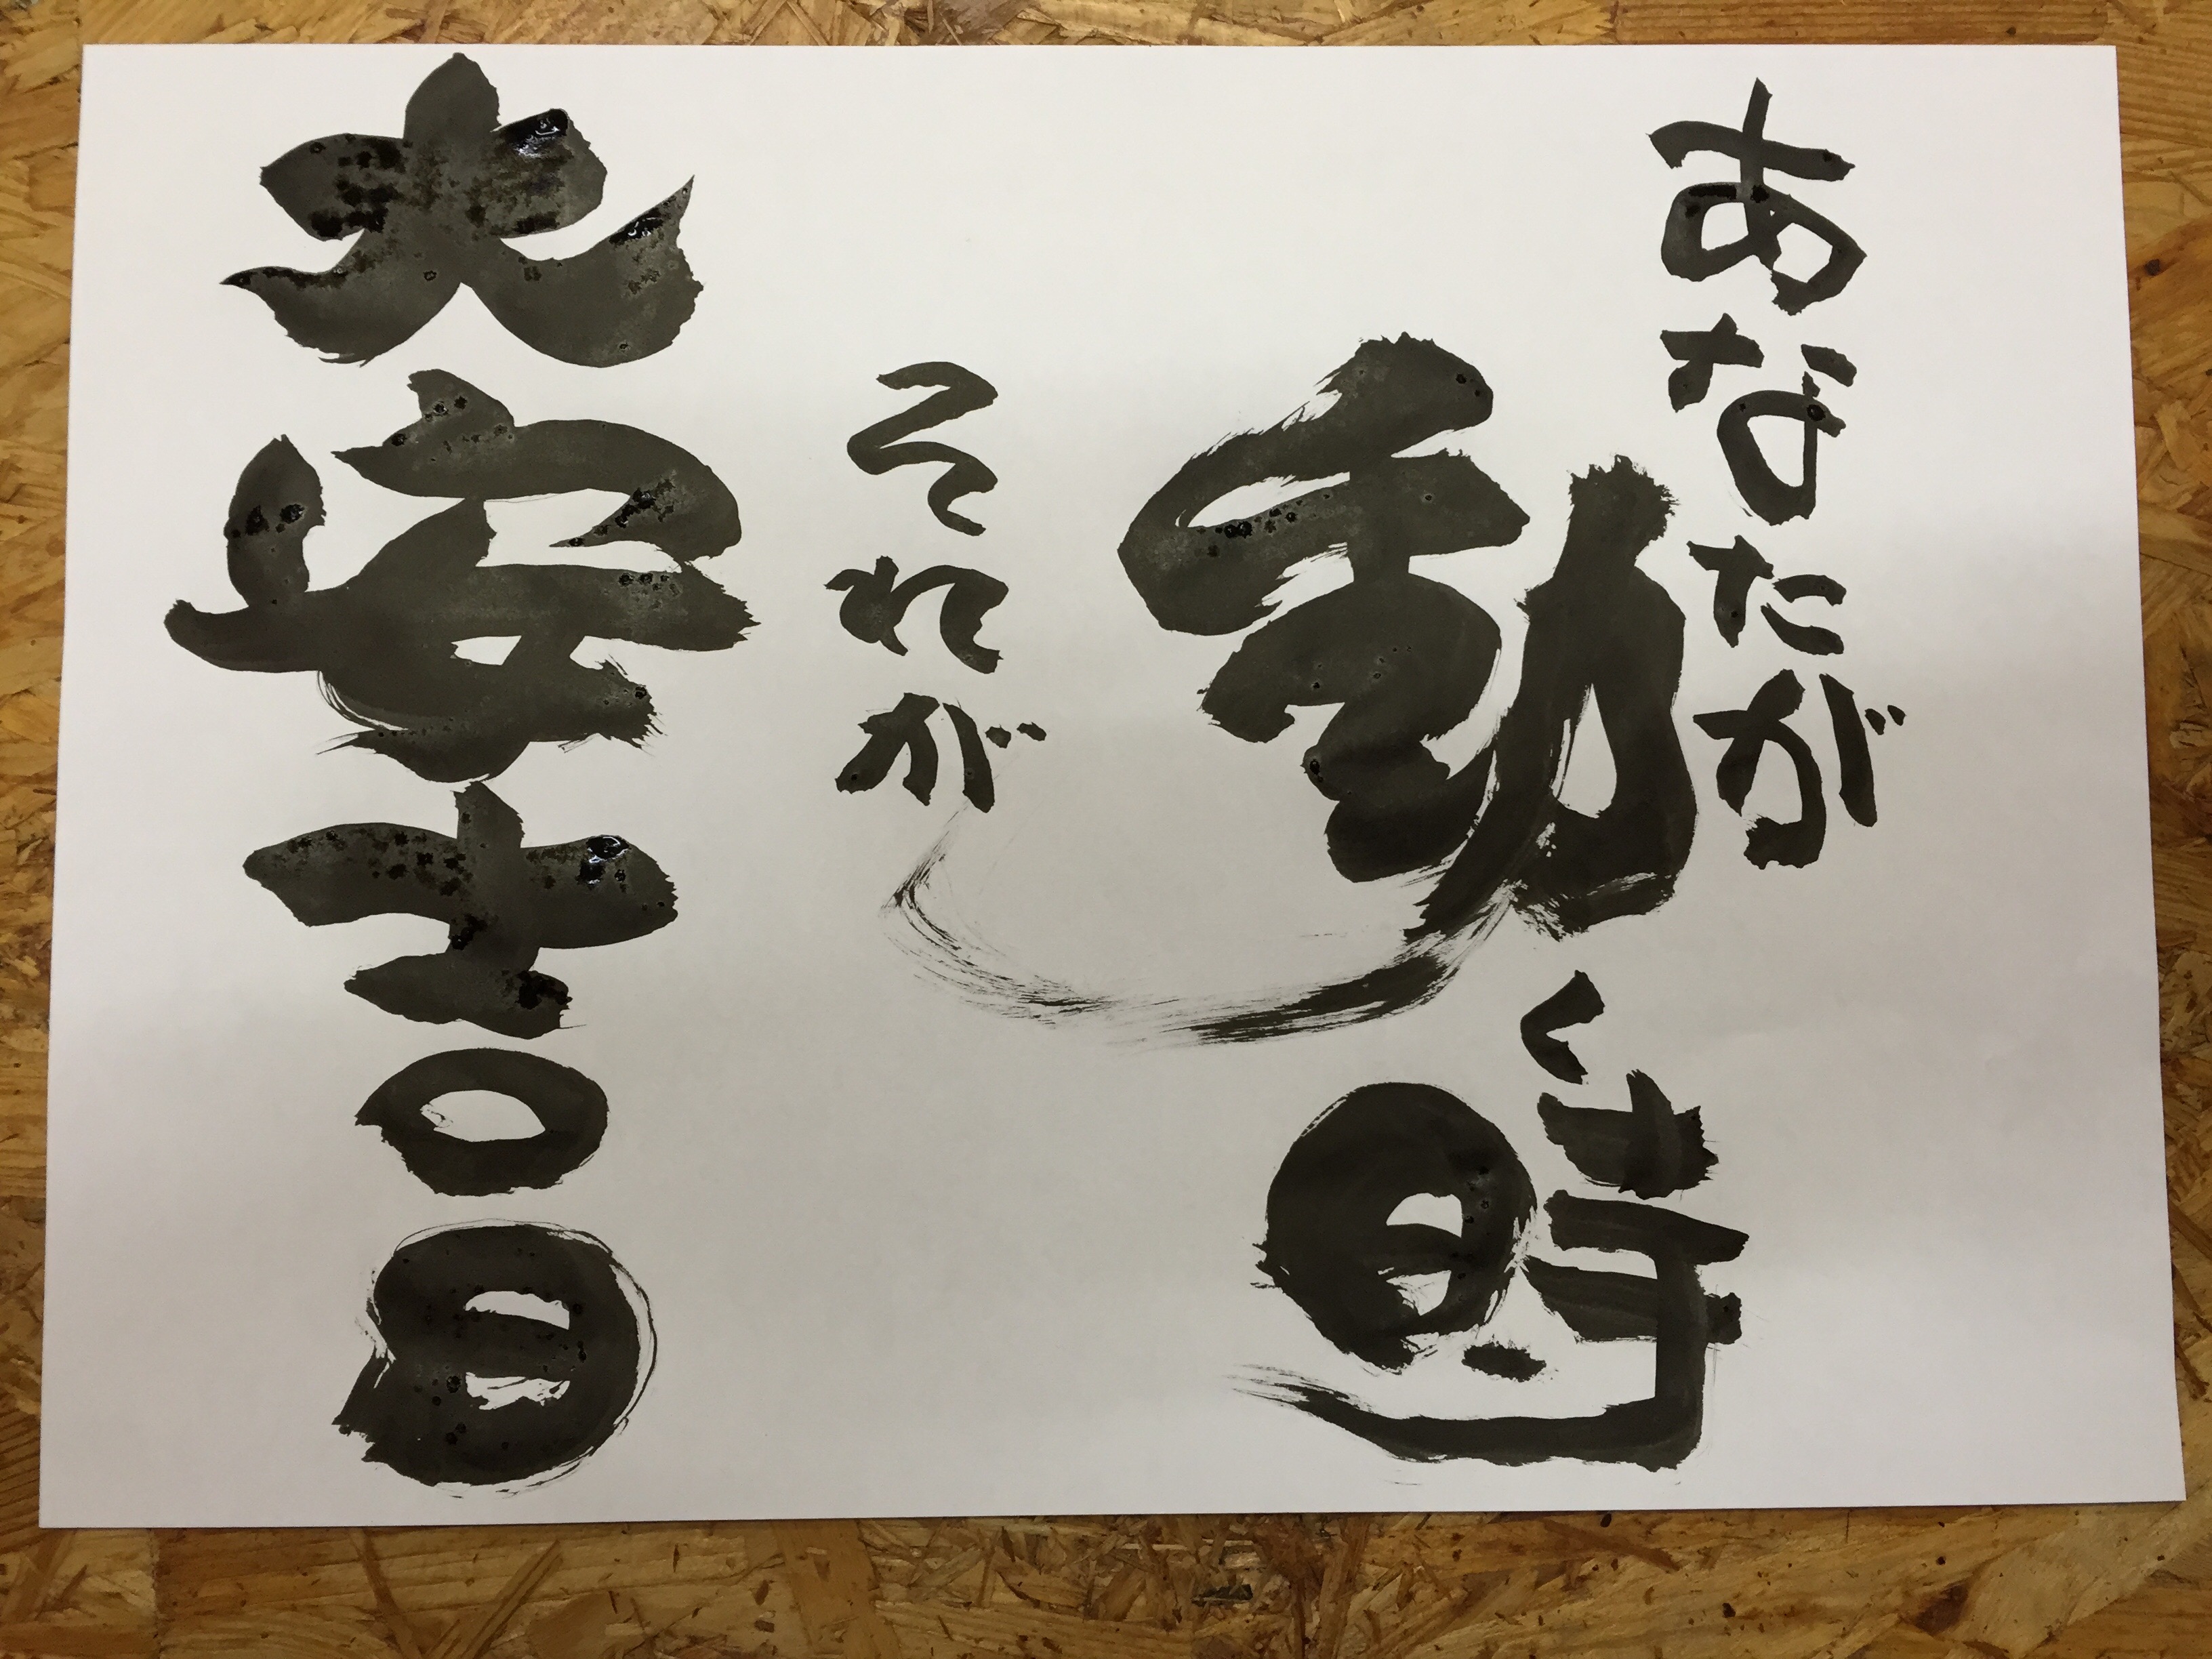 あなたが
動く時
それが
大安吉日